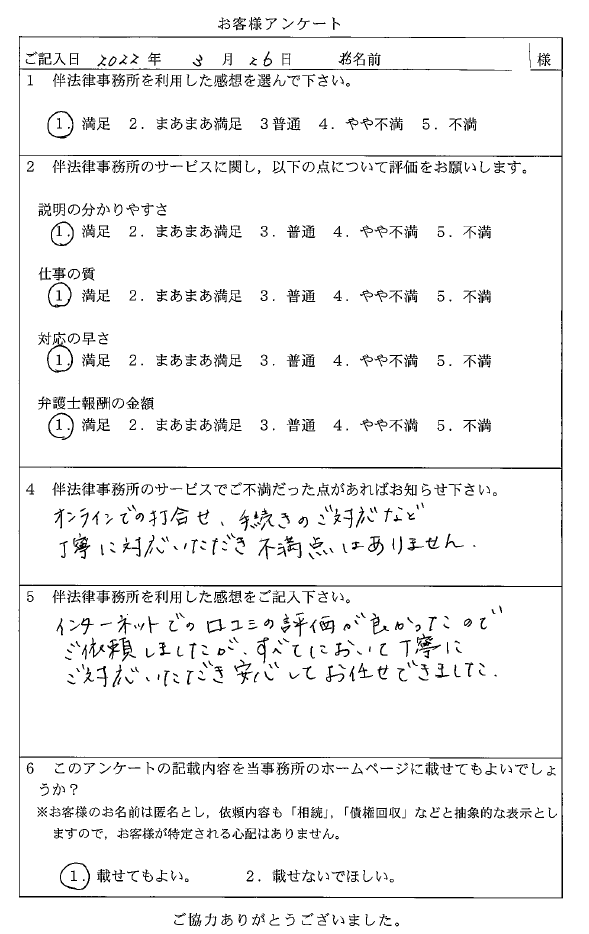 お客様アンケート
ご記入日 2022 年 3 月 26 日 お名前 様
1 伴法律事務所を利用した感想を選んで下さい。
1. 満足 2. まあまあ満足 3普通 4. やや不満 5. 不満
2 伴法律事務所のサービスに関し，以下の点について評価をお願いします。
説明の分かりやすさ
1. 満足 2. まあまあ満足 3. 普通 4. やや不満 5. 不満
仕事の質
1. 満足 2. まあまあ満足 3. 普通 4. やや不満 5. 不満
対応の早さ
1. 満足 2. まあまあ満足 3. 普通 4. やや不満 5. 不満
弁護士報酬の金額
1. 満足 2. まあまあ満足 3. 普通 4. やや不満 5. 不満
4 伴法律事務所のサービスでご不満だった点があればお知らせ下さい。
オンラインでの打合せ、手続きのご対応など
丁寧に対応いただき不満点はありません.
5 伴法律事務所を利用した感想をご記入下さい。
インターネットでの口コミの評価が良かったので
ご依頼しましたが、すべてにおいて丁寧に
ご対応いただき安心してお任せできました.
6 このアンケートの記載内容を当事務所のホームページに載せてもよいでしょ
うか？
※お客様のお名前は匿名とし，依頼内容も「相続」，「債権回収」などと抽象的な表示とし
ますので，お客様が特定される心配はありません。
1. 載せてもよい。 2. 載せないでほしい。
ご協力ありがとうございました。